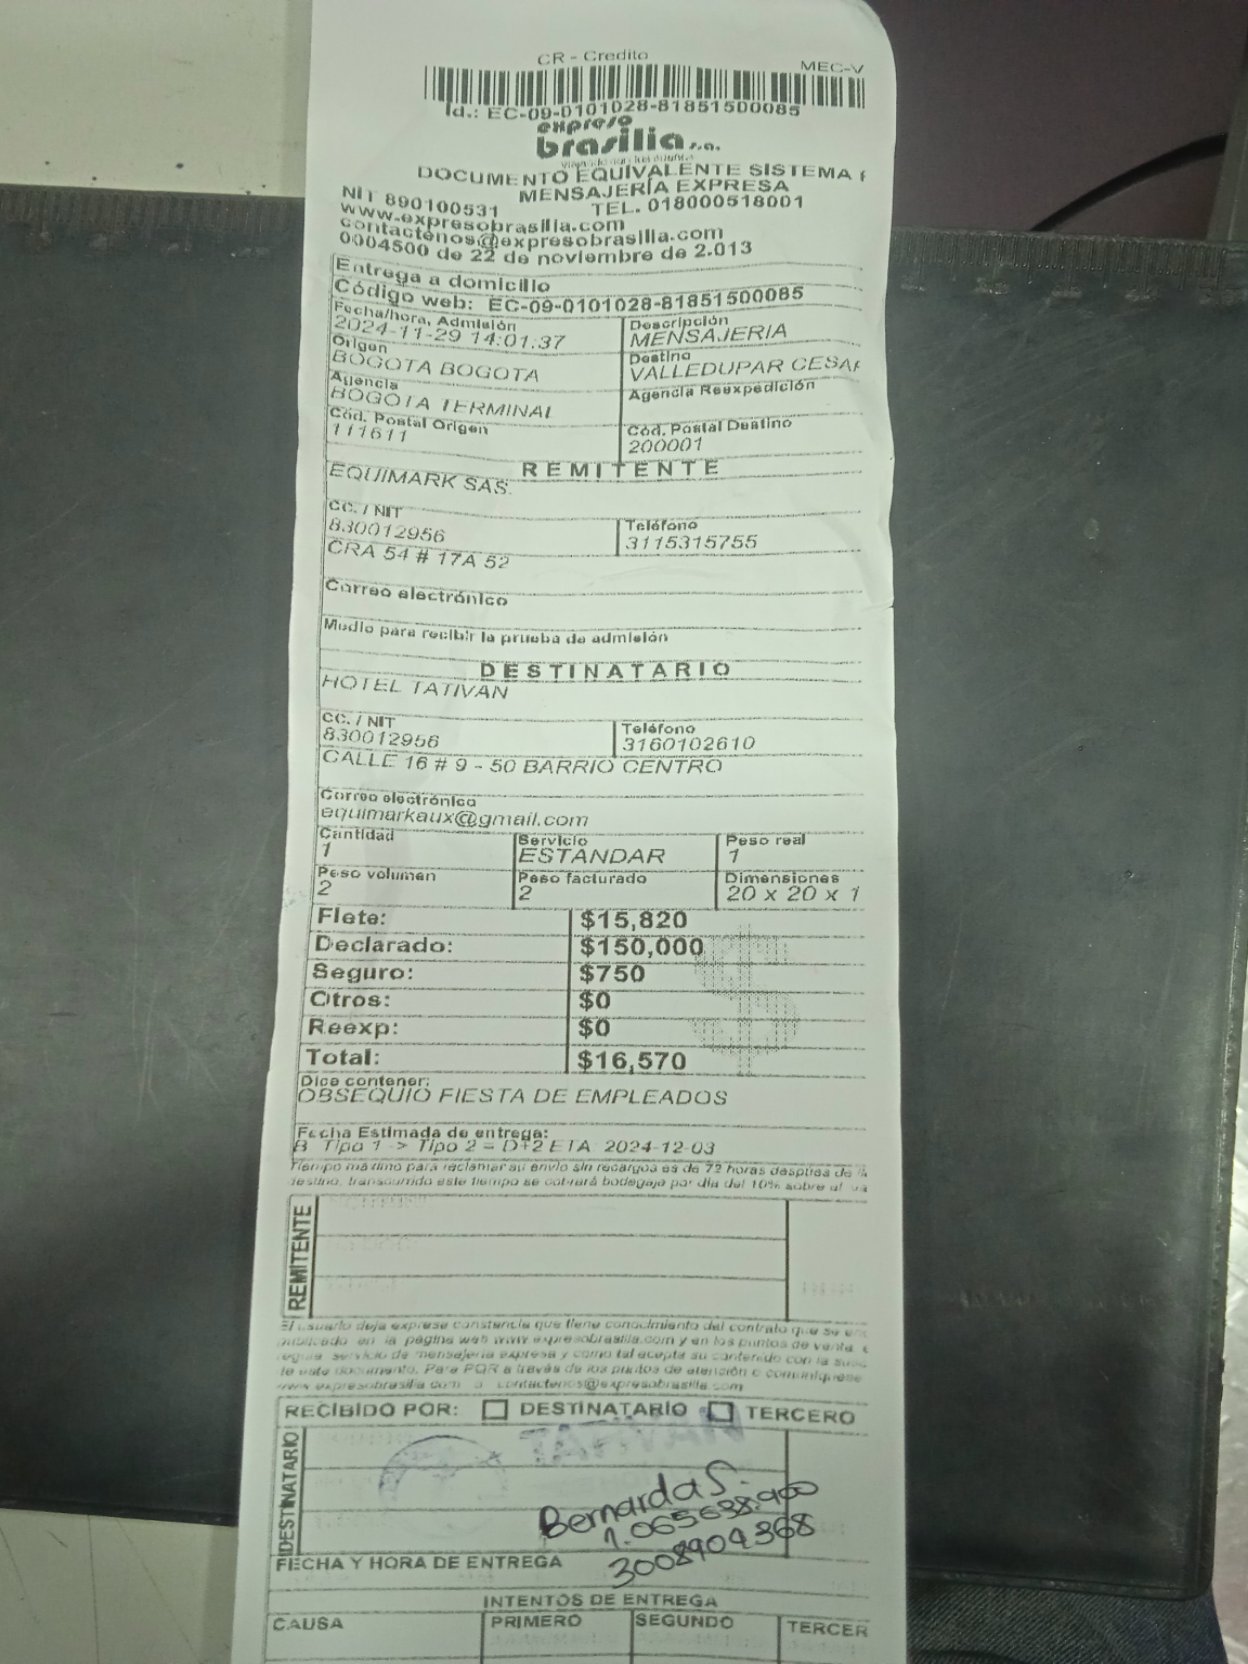 CR - Credito
MEC-V
Id.: EC-09-0101028-81851500085
expreso
brasilia s.a.
DOCUMENTO EQUIVALENTE SISTEMA
MENSAJERÍA EXPRESA
NIT 890100531 TEL. 018000518001
www.expresobrasilia.com
contactenos@expresobrasilia.com
0004500 de 22 de noviembre de 2.013
Entrega a domicilio
Código web: EC-09-0101028-81851500085
Fecha/hora, Admisión Descripción
2024-11-29 14:01.37 MENSAJERIA
Origen Destino
BOGOTA BOGOTA VALLEDUPAR CESAR
Agencia Agencia Reexpedición
BOGOTA TERMINAL
Cód. Postal Origen Cód. Postal Destino
111611 200001
REMITENTE
EQUIMARK SAS.
CC. / NIT Teléfono
830012956 3115315755
CRA 54 # 17A 52
Correo electrónico
Medio para recibir la prueba de admisión
DESTINATARIO
HOTEL TATIVAN
CC. / NIT Teléfono
830012956 3160102610
CALLE 16 # 9 - 50 BARRIO CENTRO
Correo electrónico
equimarkaux@gmail.com
Cantidad Servicio Peso real
1 ESTANDAR 1
Peso volumen Peso facturado Dimensiones
2 2 20 x 20 x 1
Flete: $15,820
Declarado: $150,000
Seguro: $750
Otros: $0
Reexp: $0
Total: $16,570
Dice contener:
OBSEQUIO FIESTA DE EMPLEADOS
Fecha Estimada de entrega:
B Tipo 1 -> Tipo 2 = D+2 ETA: 2024-12-03
Tiempo máximo para reclamar su envío sin recargos es de 72 horas después de
destino, transcurrido este tiempo se cobrará bodegaje por día del 10% sobre el
REMITENTE
El usuario deja expresa constancia que tiene conocimiento del contrato que se
publicado en la página web www.expresobrasilia.com y en los puntos de venta,
regula servicio de mensajería expresa y como tal acepta su contenido con la
de este documento. Para PQR a través de los puntos de atención o comuníquese
www.expresobrasilia.com o contactenos@expresobrasilia.com
RECIBIDO POR: DESTINATARIO TERCERO
DESTINATARIO
Bernarda S.
1.065638.900
3008904368
FECHA Y HORA DE ENTREGA
INTENTOS DE ENTREGA
CAUSA PRIMERO SEGUNDO TERCER